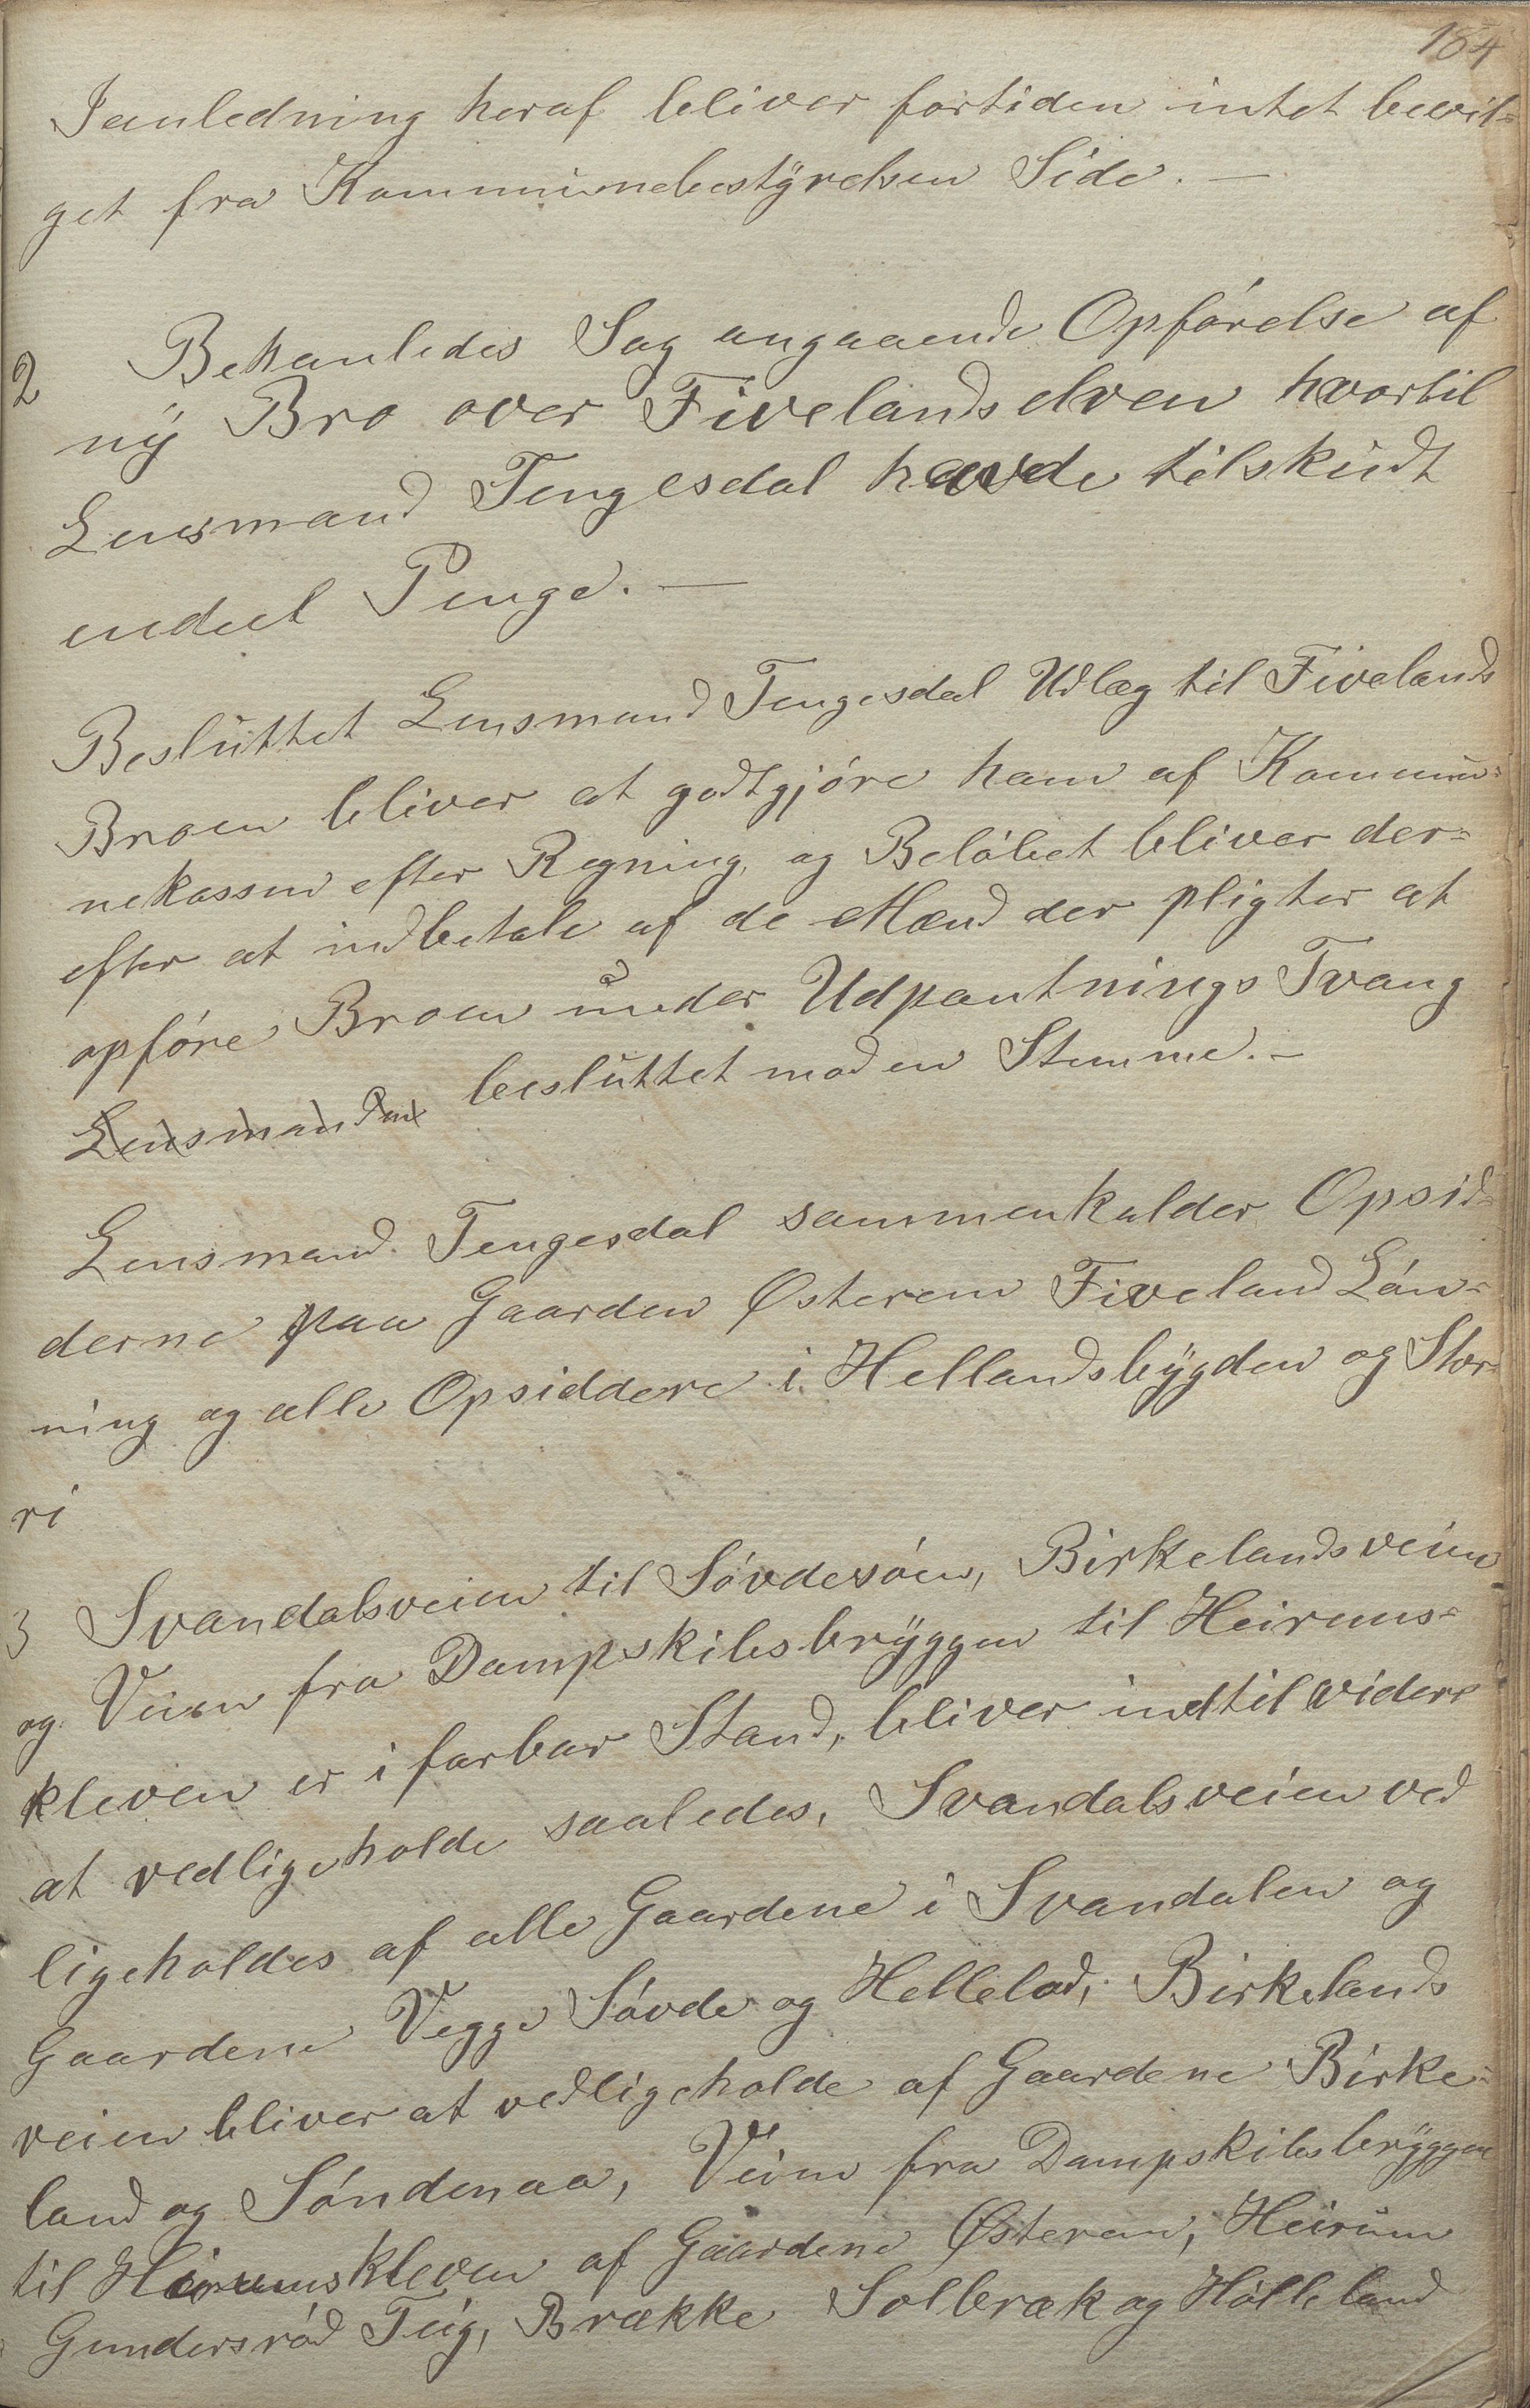 184
Ianledning heraf bliver fortiden intet bevil-
get fra Kommunebestyrelsen Side. —
2 Behanledes Sag angaaende Opførelse af
ny Bro over Fivelandselven hvortil
Lensmand Tengesdal havde tilskudt
endeel Penge. —
Besluttet Lensmand Tengesdal Udlæg til Fivelands
Broen bliver at godtgjøre ham af Kommu-
nekassen efter Regning, og Beløbet bliver der-
efter at indbetale af de Mænd der pligter at
opføre Broen under Udpantnings Tvang
Lensmanden besluttet mod en Stemme. —
Lensmand Tengesdal sammenkalder Opsid-
derne paa Gaarden Østerem Fiveland Løn-
ning og alle Opsiddere i Hellandsbygden og Stor-
ri
3 Svandalsveien til Søvdesøen, Birkelandsveien
og Veien fra Dampskibsbryggen til Heirems-
kleven er i farbar Stand, bliver indtil videre
at vedligeholde saaledes, Svandalsveien ved
ligeholdes af alle Gaardene i Svandalen og
Gaardene Vegge Søvde og Hellelod, Birkelands
veien bliver at vedligeholde af Gaardene Birke-
land og Søndenaa, Veien fra Dampskibsbryggen
til Heiremskleven af Gaardene Østerem, Heirem
Gundersrød Teig, Brække Solbræk og Hølleland